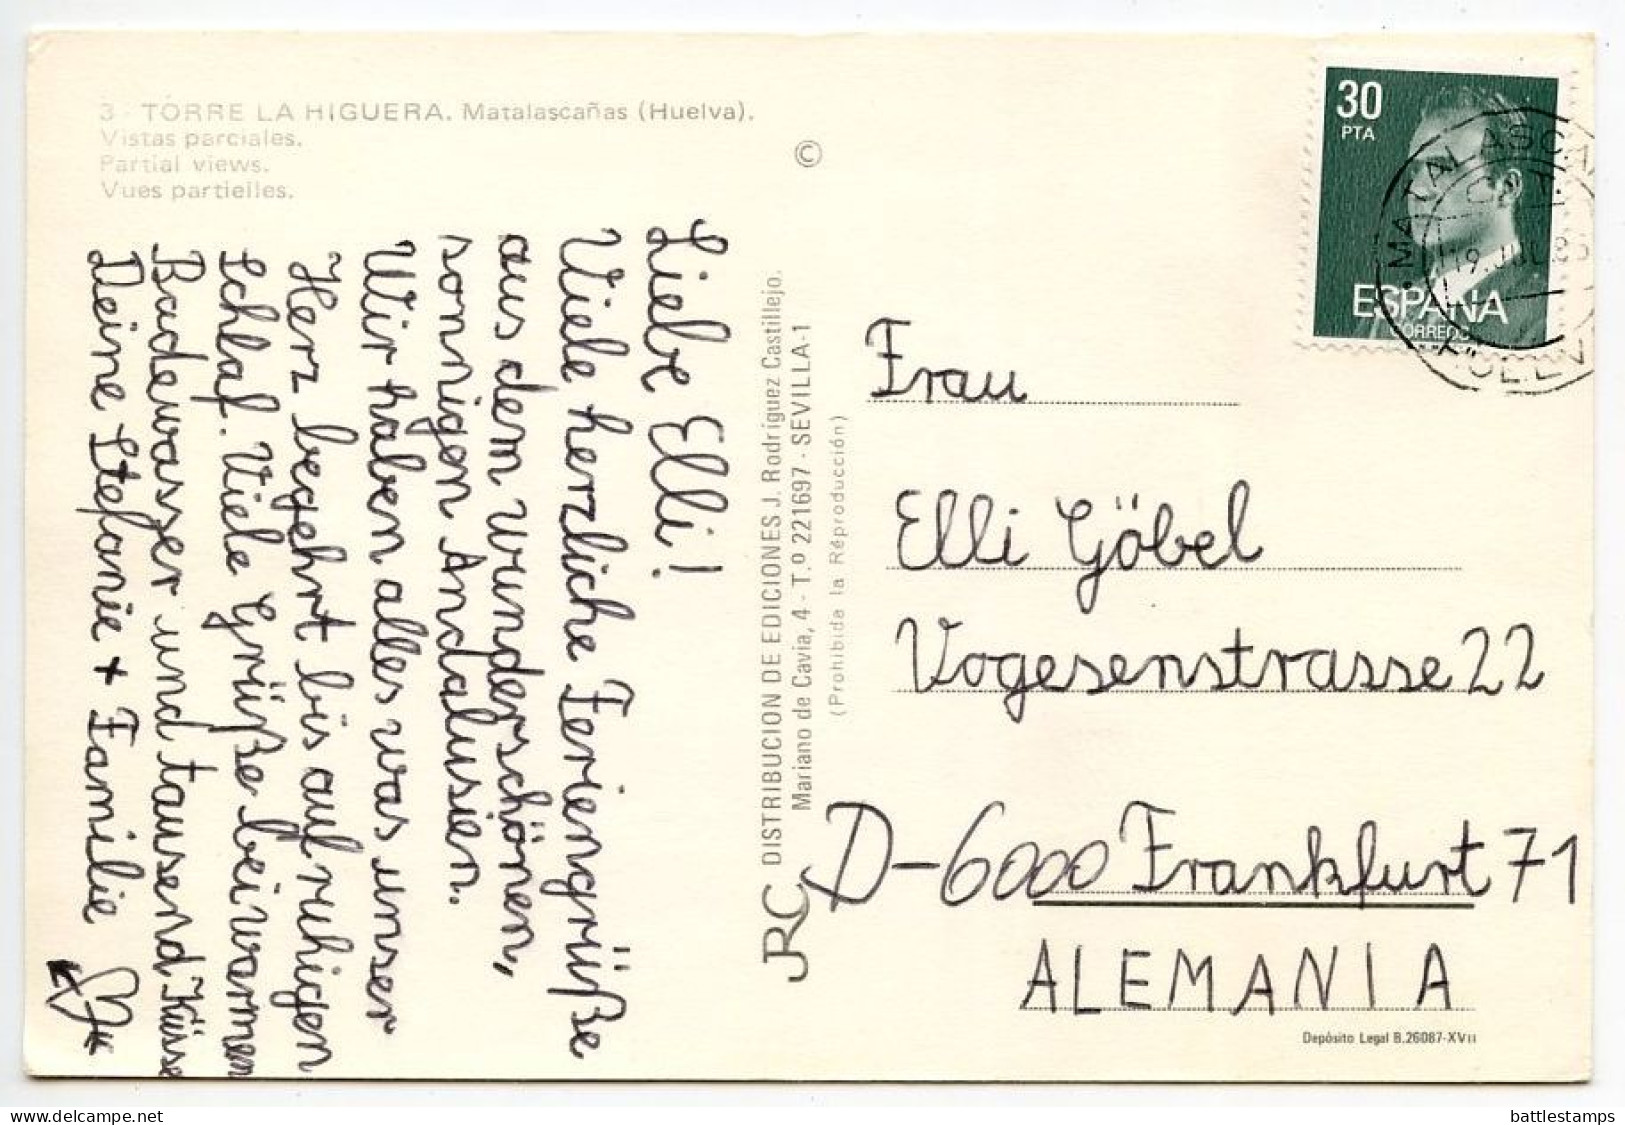 3 - TORRE LA HIGUERA. Matalascañas (Huelva).
Vistas parciales.
Partial views.
Vues partielles.
©
Liebe Elli!
Viele herzliche Feriengrüße
aus dem wunderschönen,
sonnigen Andalusien.
Wir haben alles was unser
Herz begehrt bis auf ruhigen
Schlaf. Viele Grüße bei warmen
Badewasser und tausend Küsse
Deine Stefanie + Familie
JRC DISTRIBUCION DE EDICIONES J. Rodríguez Castillejo.
Mariano de Cavia, 4 - T.º 221697 - SEVILLA-1
(Prohibida la Réproducción)
30
PTA
ESPAÑA
CORREOS
MATALASCA
19. JUL 8
HUELV
Frau
Elli Göbel
Vogesenstrasse 22
D-6000 Frankfurt 71
ALEMANIA
Depósito Legal B.26087-XVII
delcampe.net
battlestamps